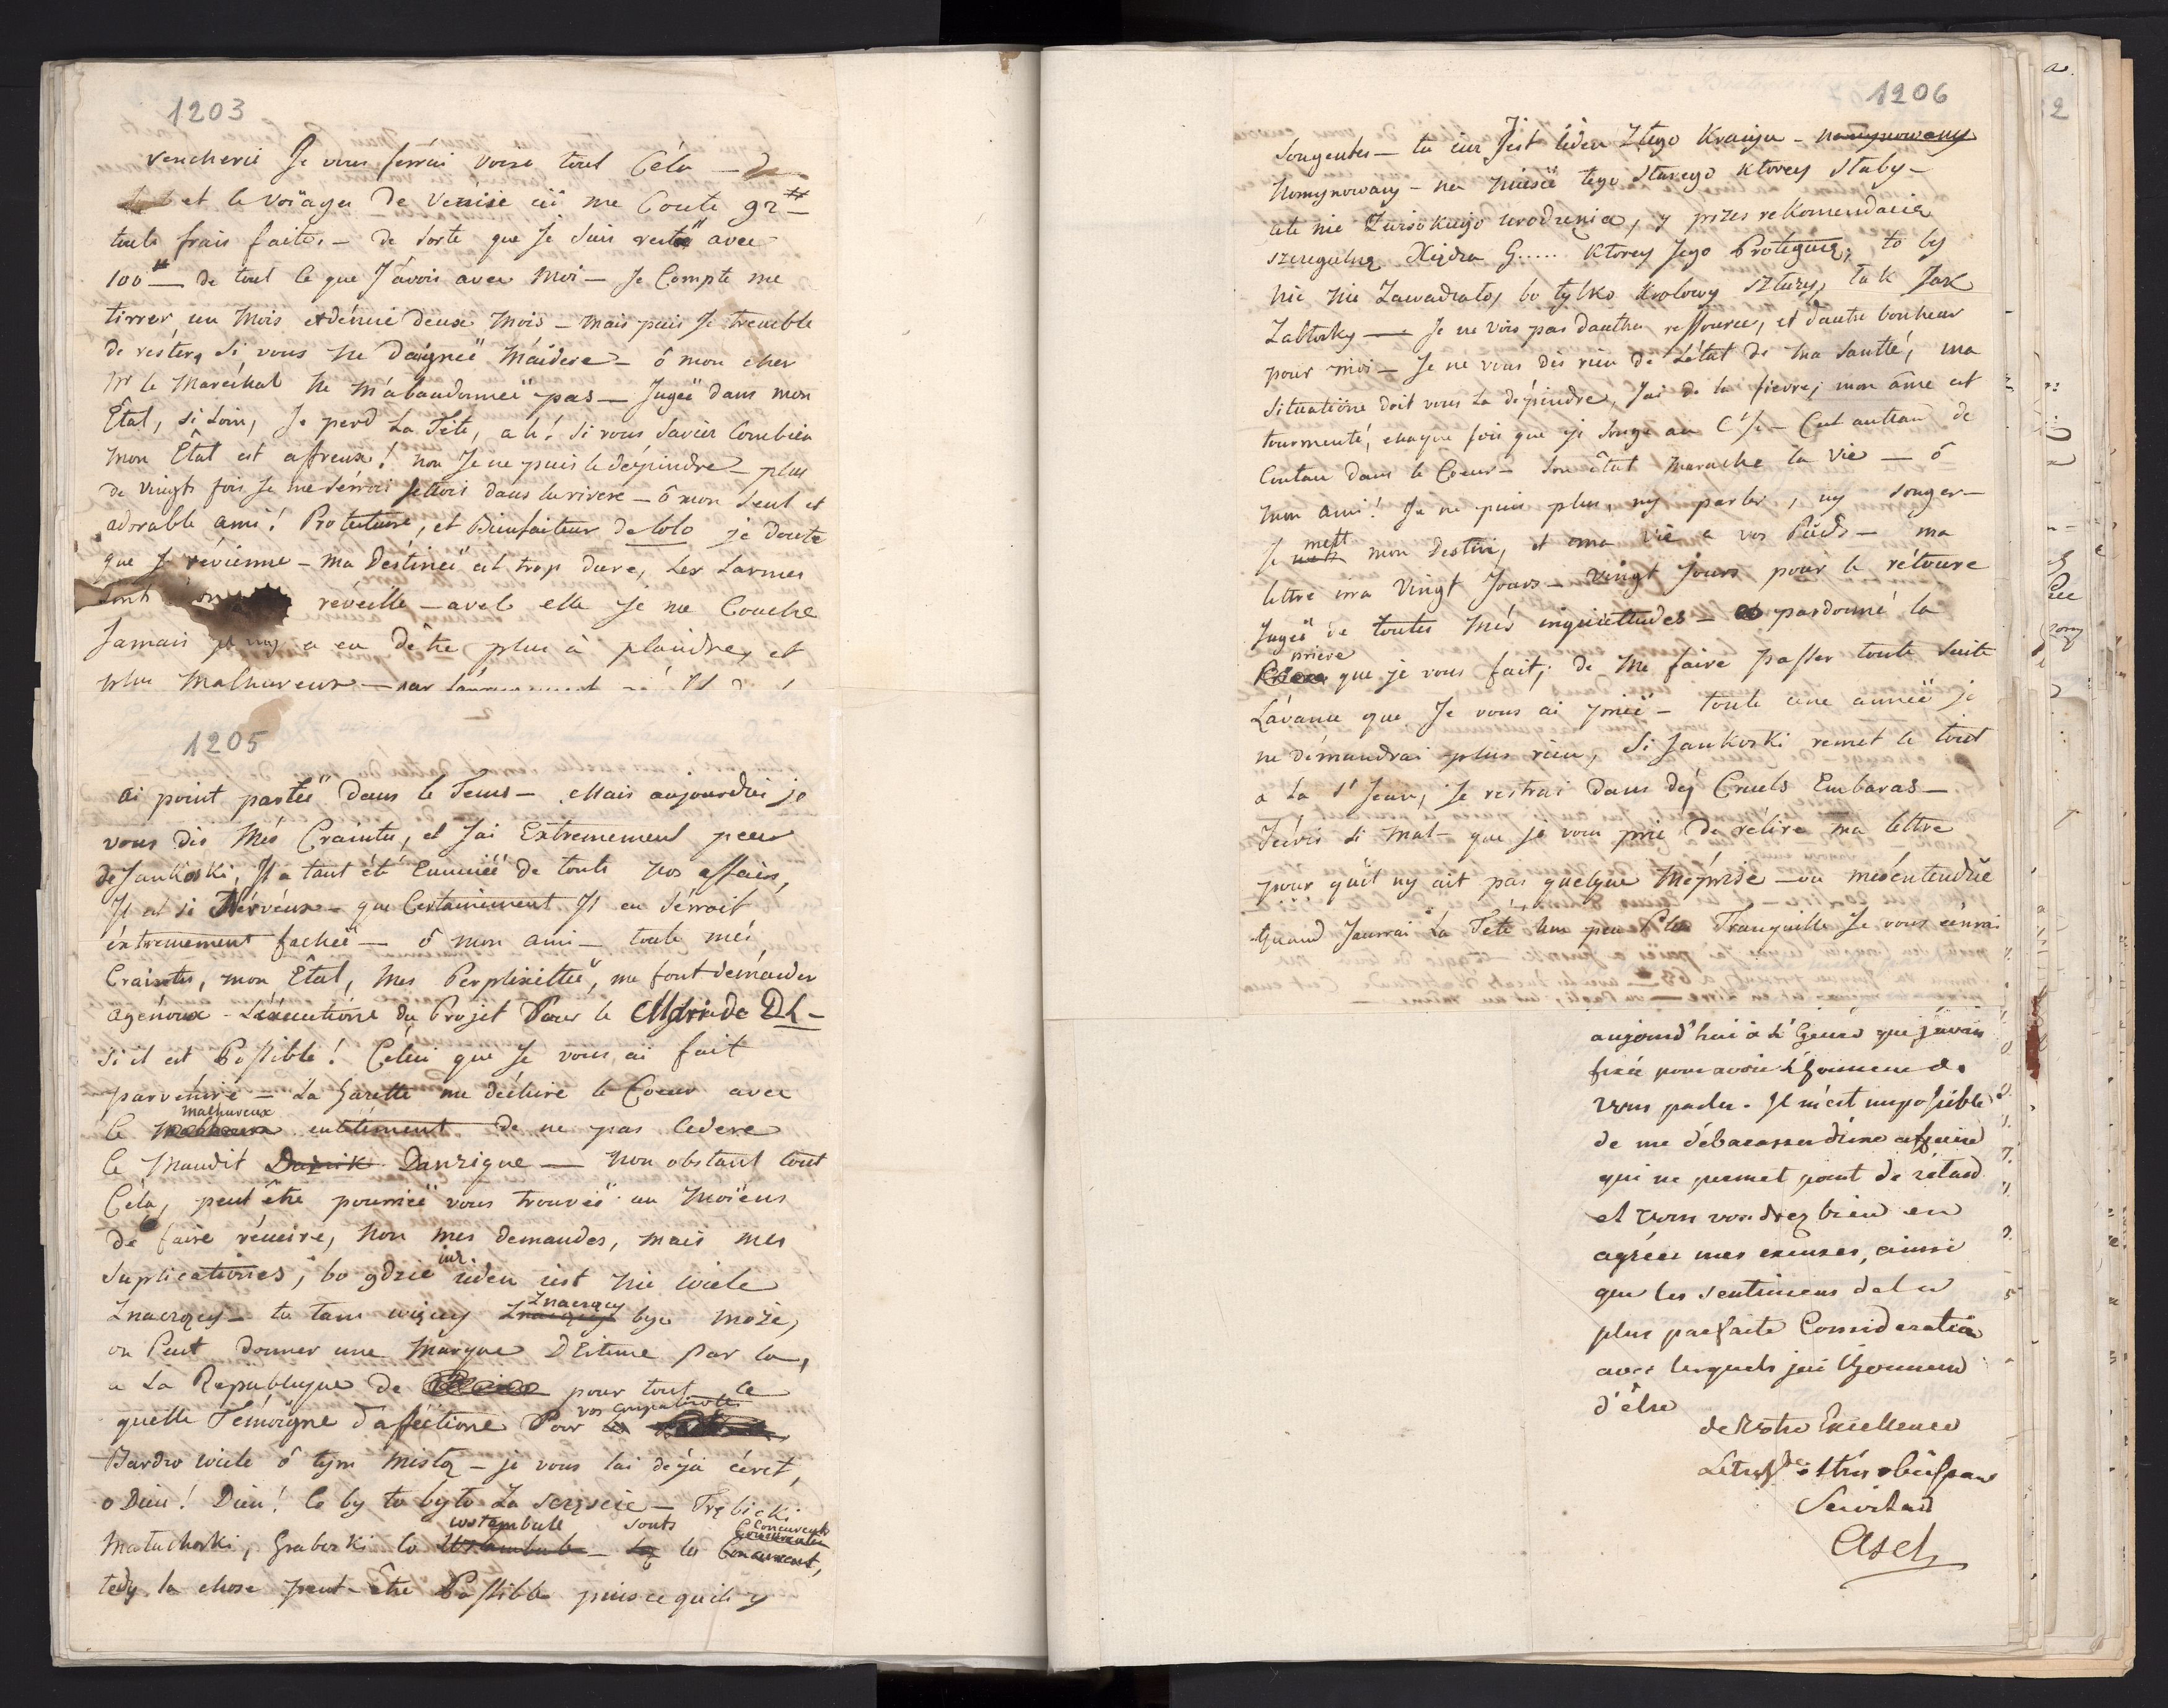 1203
rencherie Je vous ferrai voire tout Céla —
et le voïage de Venise où me Coute 92#
touts frais faits — de sorte que Je Suis restëe avec
100# — de tout le que J'avois avec Moi — Je Compte me
tirrer un Mois et démie deux Mois — Mais puis Je tremble
de rester, Si vous ne daigneë M'aidere — ô mon cher
Mr le Maréchal Ne m'abandonneë pas — Jugeë dans mon
Êtat, si Loin, Je perd La Tête, ah! si vous Saviés Combien
mon Êtat est affreux! non Je ne puis le dépindre — plus
de Vingts fois Je me serrois Jettois dans la rivere — ô mon Seul et
adorable ami! Protecteure, et Bienfaiteur de Lolo je doute
que Je révienne — Ma Destineë est trop dure, Les Larmes
sont réveille — avec elle je me Couche
Jamais il n'y a eu d'être plus à plaindre, et
plus Malhureux — par
1205
ai point parleë dans le Tems — Mais aujourdhui je
vous dis Més Craintes, et Jai Extremement peur
de Jankoski, Jl a tant été Ennuiëé de touts Nos affairs,
Jl est si Nérvéux — que Certainement Jl en Sérroit
éxtremement facheë — ô mon ami — toute més
Craintes, mon Êtat, Mes Perplexitteë, me font démander
agénoux — L'éxécutione du Projet Pour le Msri de DL —
si il est Possible! Célui que Je vous ai fait
parvénire = La Gazette me déchire le Coeur avec
le malhureux entêtément de ne pas Cedere
le Maudit Danzique — Non obstant tout
Céla, peut être pourrieë vous trouveë un Moïens
de faire réuire, Non mes demandes, mais mes
Suplicationes, bo gdzie iuz ieden iest nie wiele
Znaczący — tu tam więcey Znaczący bydz może,
on Peut donner une Marque D'Estime par la,
a La Republique de pour tout Ce
quelle Témoigne d'afféctione Pour vos compatriotes
Bardzo wiele ô tym Mislą — je vous l'ai déja écrit,
ô Dieu! Dieu! Co by to było Za Sczęscie — Trębicki
Matuchoski, Graboski co wstambule sonts les Concurents
tedy la chose peut-être Possible puis ce qu'il y
1206
Songentés — tu iuz Jest ieden Ztego Kraiju — nomynowany
Nomynowany — na Mieisce tego Starego ktorey Staby —
ale nie Zwisokiego urodzenia, y przes rekomendacia
szczegulną Xiędza G..... ktorey Jego Protegue, to by
nic nie Zawadzało, bo tylko Krolowy Służy, tak Jak
Zabłosky — Je ne vois pas dautre ressource, et dautre bonheur
pour moi — Je ne vous dis rien de L'état de Ma Santté, ma
Situatione doit vous La dépindre, J'ai de la fievre, mon âme est
tourmenté, chaque fois que je Songe au C'te — C'est autean de
Coutau dans le Coeur — Son êtat M'arache la vie — ô
mon ami! Je ne puis plus, ny parler, ny Songer —
Je mest mon Destin, et ma vie a vos Pieds — ma
lettre irra Vingt Jours — Vingt Jours pour le rétoure
Jugeë de toutes Més inquiettudes — pardonné la
priere que je vous fait, de me faire passer toute suite
L'avance que Je vous ai prieë — toute une anneë je
ne démandrai plus rien, Si Jankoski remet le tout
a La St Jean, Je restrai dans déj Cruels Embaras —
J'écris si mal — que je vous prie de rélire ma lettre
pour qu'il ny ait pas quelque Méprise — ou mésentendüe
Quand Jaurrai La Tete Un peu Plus Tranquille Je vous écrirai
aujourd'hui à l'heure que j'avois
fixée pour avoir l'honneur de
vous parler. Il m'est impossible
de me débarasser d'une affaire
qui ne permet point de retard
et vous voudrez bien en
agréer mes excuses, ainsi
que les sentimens de la
plus parfaite Consideration
avec lesquels j'ai l'honneur
d'être
de Votre Excellence
Le très hble & très obéissant
Serviteur
Asch